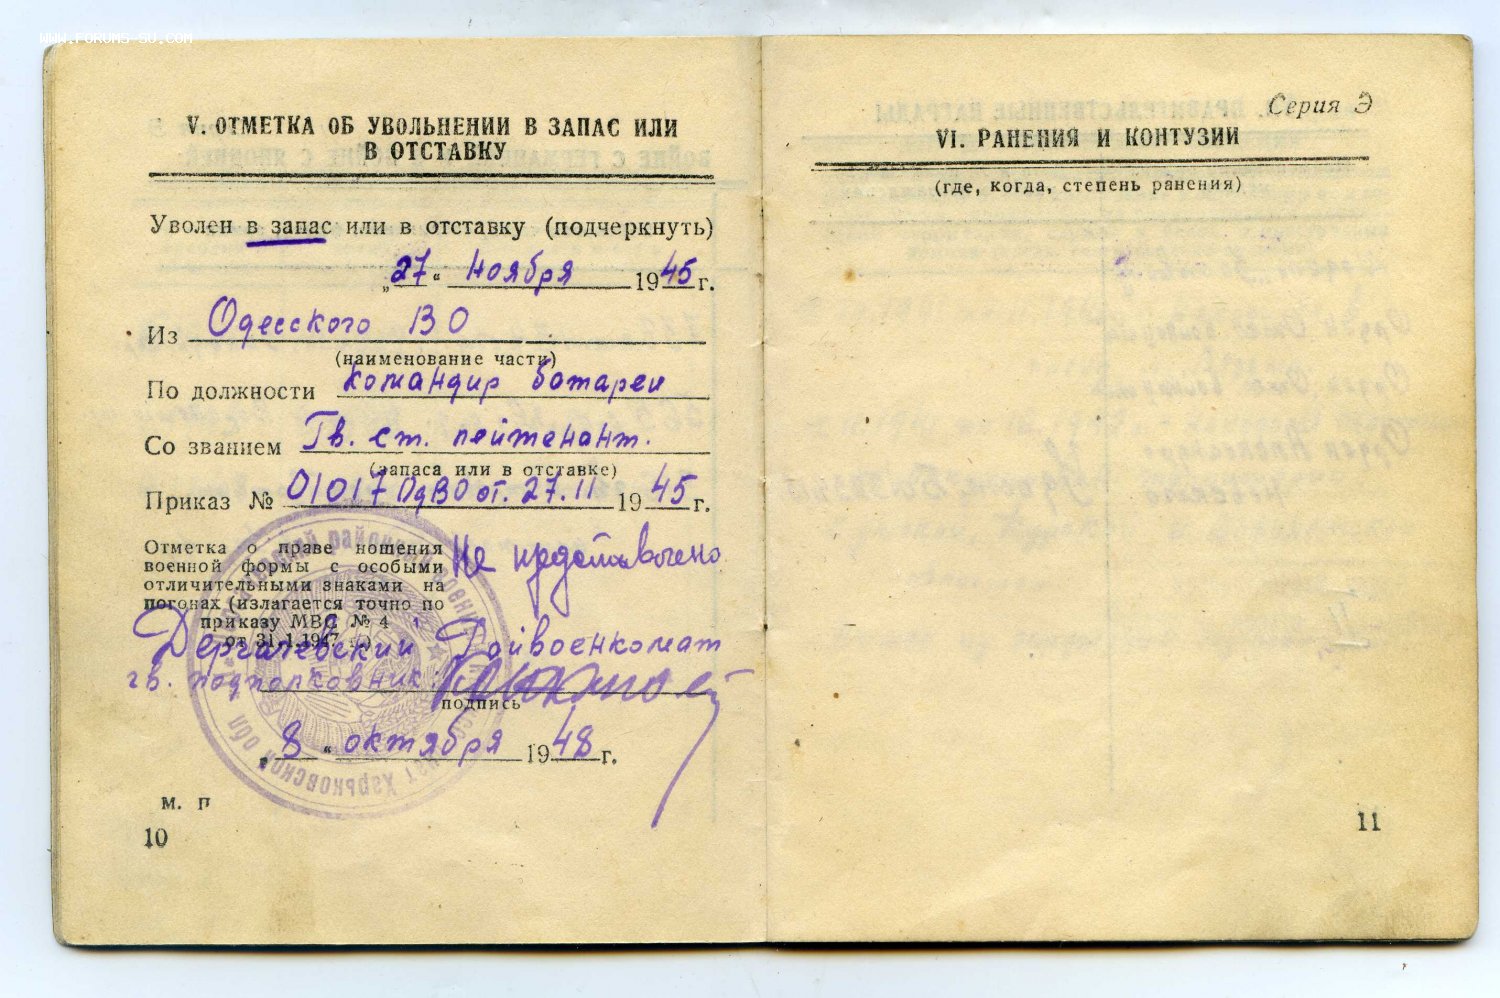 WWW.FORUMS-SU.COM
V. ОТМЕТКА ОБ УВОЛЬНЕНИИ В ЗАПАС ИЛИ
В ОТСТАВКУ
Уволен в запас или в отставку (подчеркнуть)
„27“ Ноября 1945 г.
Из Одесского ВО
(наименование части)
По должности Командир батареи
Со званием Гв. ст. лейтенант.
(запаса или в отставке)
Приказ № 01017 ОдВО от. 27.11 1945 г.
Отметка о праве ношения
военной формы с особыми
отличительными знаками на
погонах (излагается точно по
приказу МВС № 4
от 31.1.1947 г.)
Не представлено
Дергачевский Райвоенкомат
гв. подполковник
подпись
„8“ октября 1948 г.
районный военный
Харьковской обл
М. П
10
Серия Э
VI. РАНЕНИЯ И КОНТУЗИИ
(где, когда, степень ранения)
11